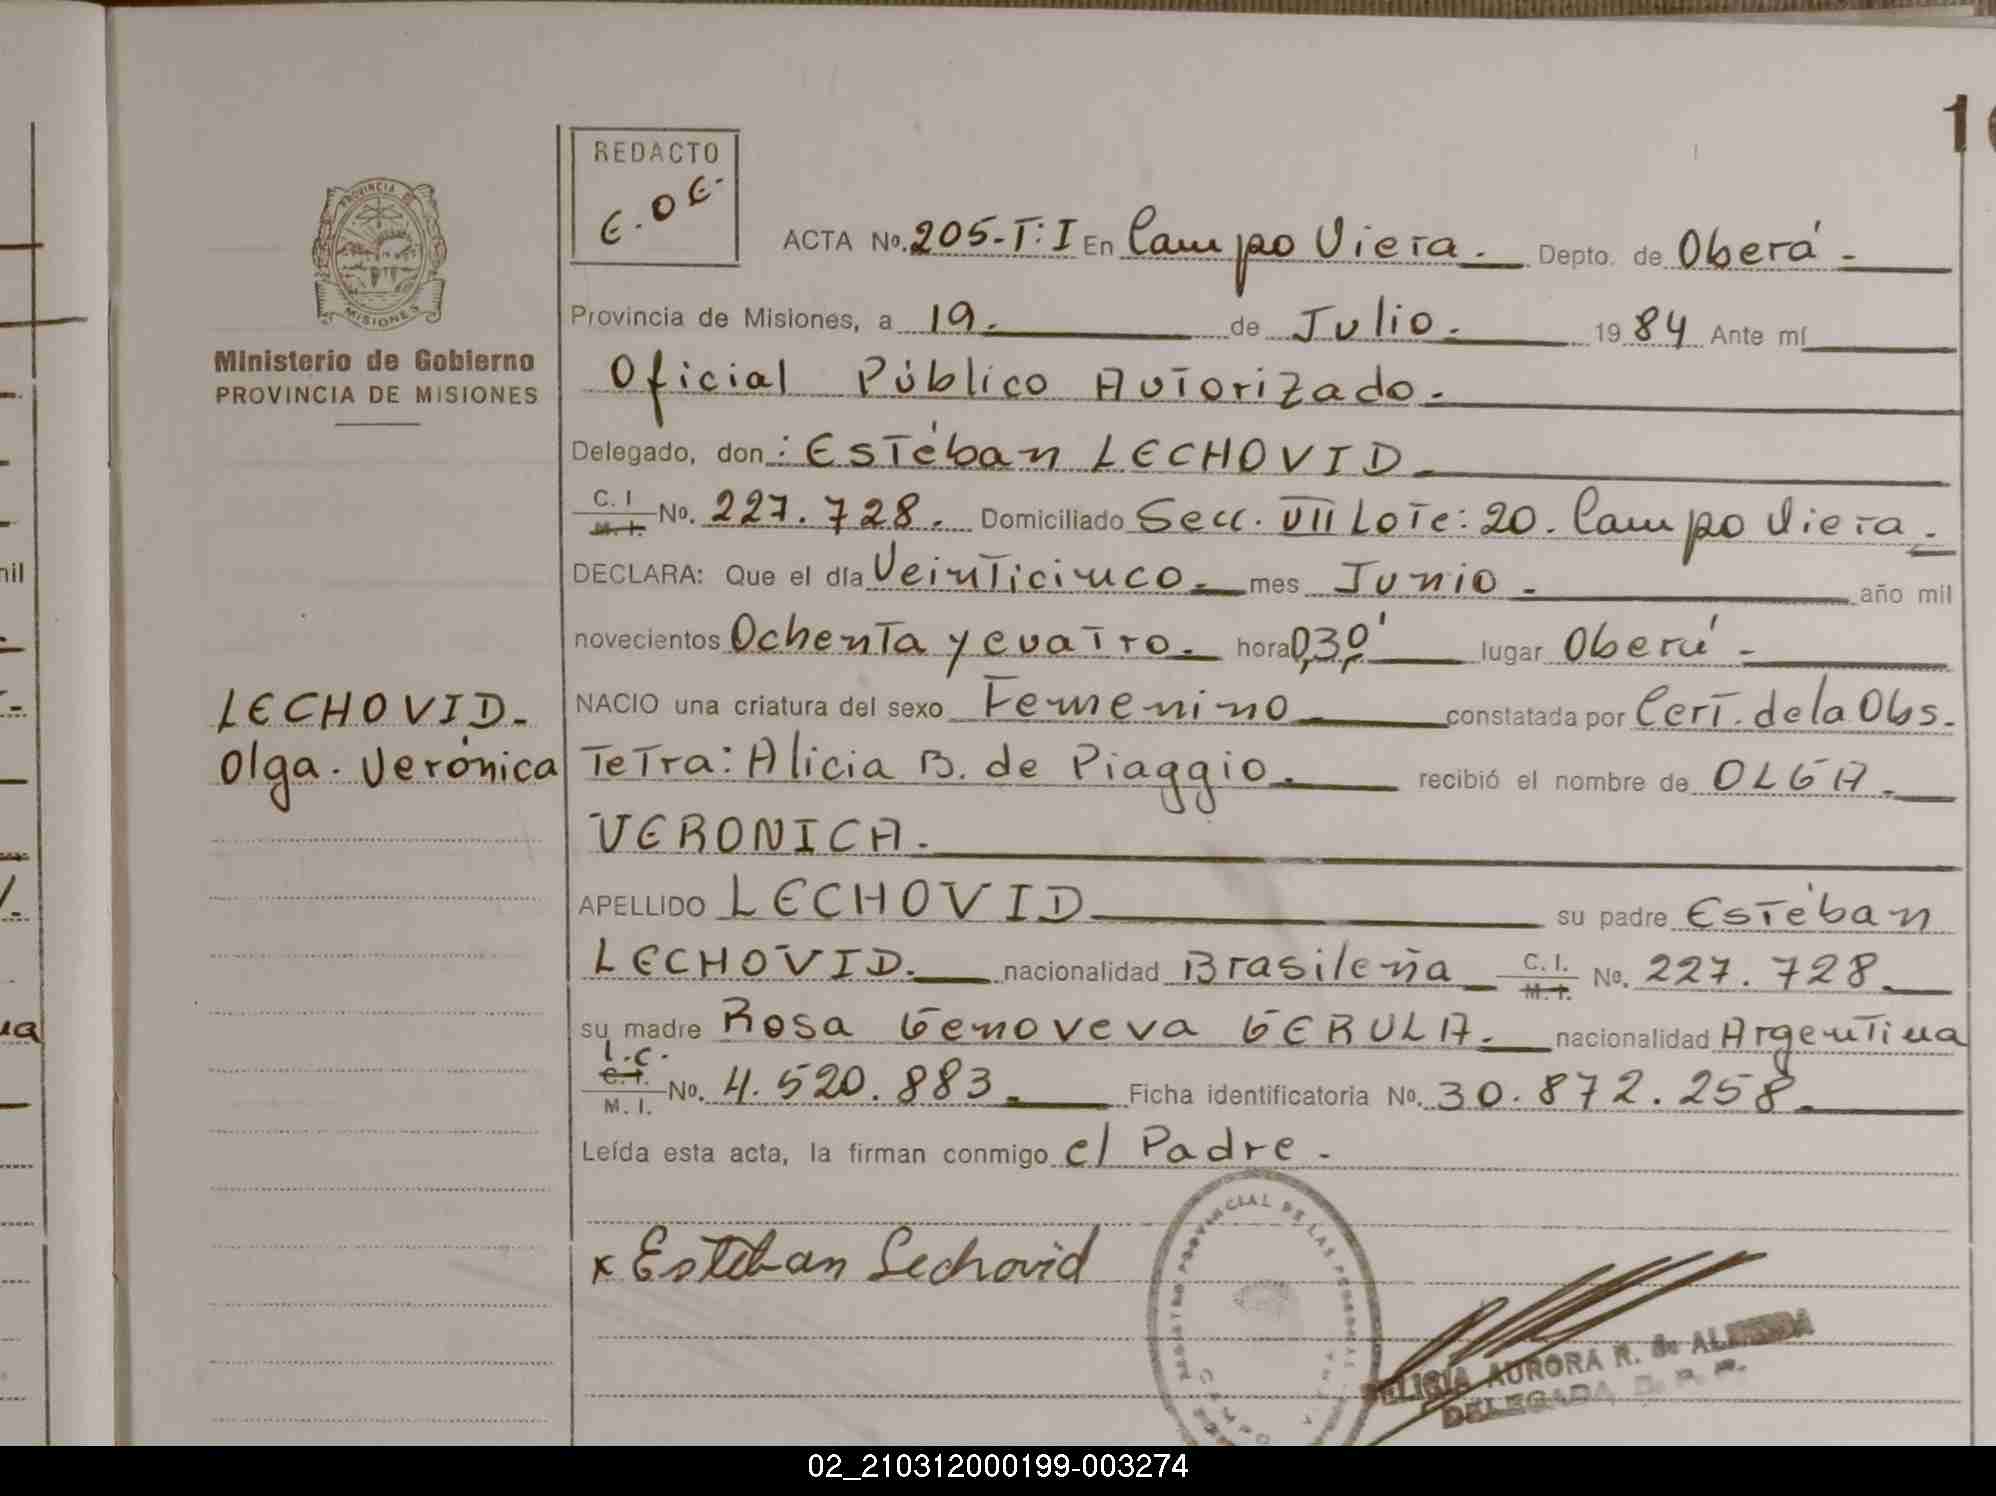 10
REDACTO
E.O.E.
PROVINCIA DE
MISIONES
Ministerio de Gobierno
PROVINCIA DE MISIONES
ACTA No. 205-T:I En Campo Viera. Depto. de Oberá.
Provincia de Misiones, a 19. de Julio. 1984 Ante mí
Oficial Público Autorizado.
Delegado, don: Estéban LECHOVID
C. I. M. I. No. 227.728. Domiciliado Secc. VII Lote: 20. Campo Viera.
DECLARA: Que el día Veinticinco. mes Junio. año mil
novecientos Ochenta y cuatro. hora 0,30' lugar Oberá.
LECHOVID.
Olga. Verónica
NACIO una criatura del sexo Femenino constatada por Cert. de la Obs.
Tetra: Alicia B. de Piaggio. recibió el nombre de OLGA.
VERONICA.
APELLIDO LECHOVID su padre Estéban
LECHOVID. nacionalidad Brasileña C. I. M. I. No. 227.728.
su madre Rosa Genoveva GERULA. nacionalidad Argentina
L.C. C. I. M. I. No. 4.520.883. Ficha identificatoria No. 30.872.258.
Leída esta acta, la firman conmigo el Padre.
x Esteban Lechovid
REGISTRO PROVINCIAL DE LAS PERSONAS
AURORA R. de
DELEGADA
02_210312000199-003274